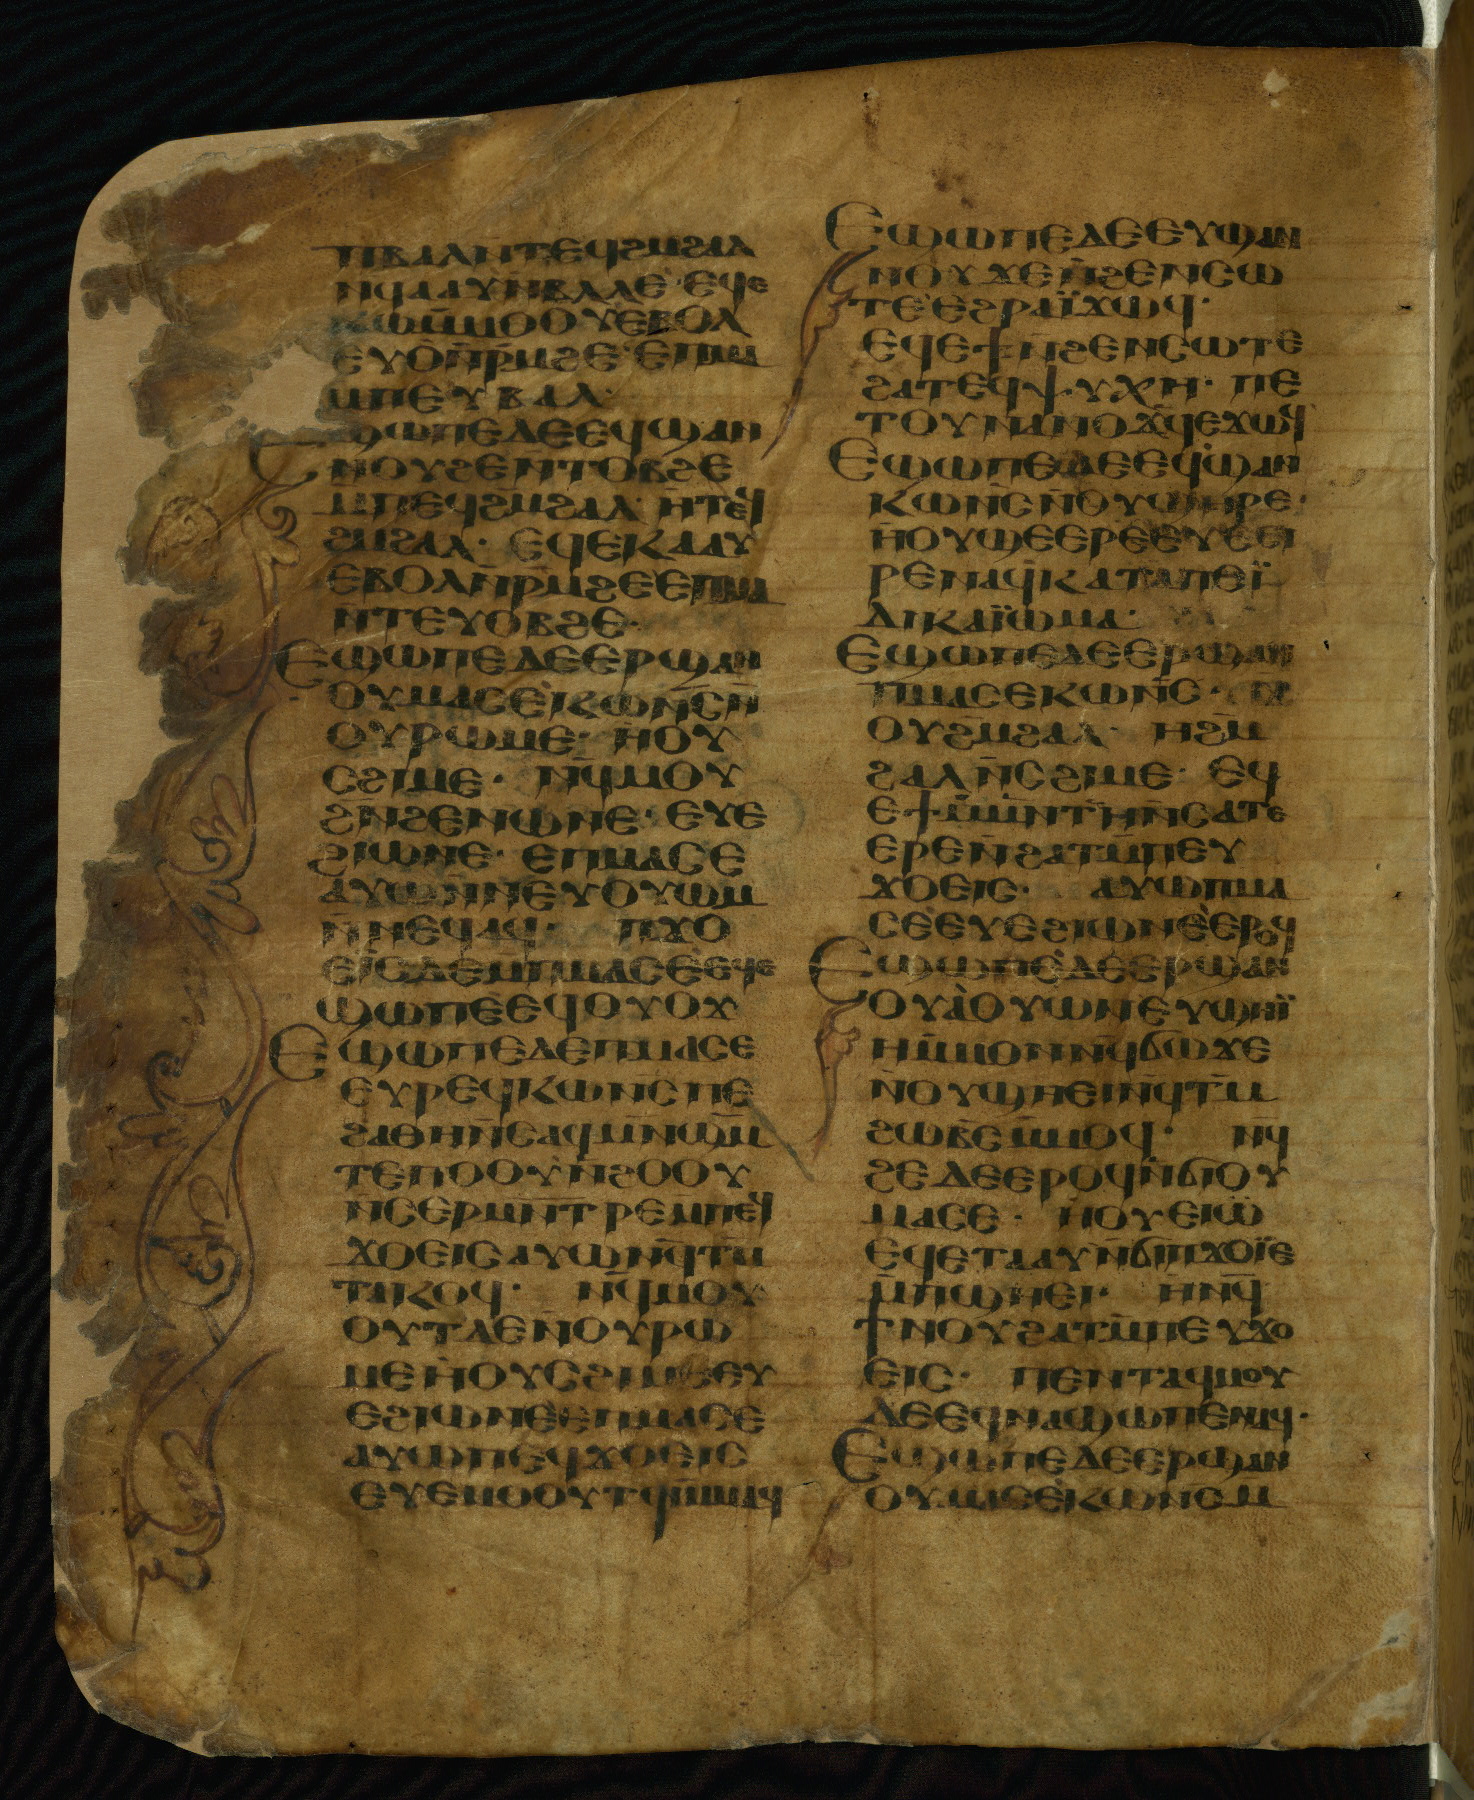 ⲡⲃⲁⲗⲛⲧⲉϥϩⲙϩⲁⲗ
ⲛϥⲁⲁⲩⲛⲃⲗⲗⲉ· ⲉϥⲉ
ⲕⲱⲙⲙⲟⲟⲩⲉⲃⲟⲗ
ⲉⲩⲟⲛ̄ⲣⲙ̄ϩⲉ ⲉⲡⲙⲁ
ⲙⲡⲉⲩⲃⲁⲗ·
Ⲉϣⲱⲡⲉⲇⲉⲉϥϣⲁⲛ
ⲛⲟⲩϩⲉⲛ̄ⲧⲟⲃϩⲉ
ⲙ̄ⲡⲉϥϩⲙϩⲁⲗ· ⲏⲧⲉϥ
ϩⲙϩⲁⲗ· ⲉϥⲉⲕⲁⲁⲩ
ⲉⲃⲟⲗⲛ̄ⲣⲙ̄ϩⲉⲉⲡⲙⲁ
ⲛⲧⲉⲩⲟⲃϩⲉ·
Ⲉϣⲱⲡⲉⲇⲉⲉⲣϣⲁⲛ
ⲟⲩⲙⲁⲥⲉⲕⲱⲛ̄ⲥⲛ̄
ⲟⲩⲣⲱⲙⲉ· ⲏⲟⲩ
ⲥϩⲓⲙⲉ· ⲛϥ̄ⲙⲟⲩ
ϩⲛ̄ϩⲉⲛⲱⲛⲉ· ⲉⲩⲉ
ϩⲓⲱⲛⲉ· ⲉⲡⲙⲁⲥⲉ
ⲁⲩⲱⲛ̄ⲛⲉⲩⲟⲩⲱⲙ
ⲛ̄ⲛⲉϥⲁϥ· ⲡϫⲟ
ⲉⲓⲥⲇⲉⲙⲡⲙⲁⲥⲉⲉϥⲉ
ϣⲱⲡⲉⲉϥⲟⲩⲟϫ
Ⲉϣⲱⲡⲉⲇⲉⲡⲙⲁⲥⲉ
ⲉⲩⲣⲉϥⲕⲱⲛ̄ⲥⲡⲉ
ϩⲁⲑⲏⲛ̄ⲥⲁϥⲙⲛ̄ϣⲙ̄
ⲧⲉⲡⲟⲟⲩⲛ̄ϩⲟⲟⲩ
ⲛ̄ⲥⲉⲣⲙⲛ̄ⲧⲣⲉⲙⲡⲉϥ
ϫⲟⲉⲓⲥⲁⲩⲱⲛϥ̄ⲧⲙ̄
ⲧⲁⲕⲟϥ· ⲛϥ̄ⲙⲟⲩ
ⲟⲩⲧⲇⲉⲛ̄ⲟⲩⲣⲱ
ⲙⲉⲏⲟⲩⲥϩⲓⲙⲉⲉⲩ
ⲉϩⲓⲱⲛⲉⲉⲡⲙⲁⲥⲉ
ⲁⲩⲱⲡⲉϥϫⲟⲉⲓⲥ
ⲉⲩⲉⲙⲟⲟⲩⲧϥⲛ̄ⲙⲙⲁϥ
Ⲉϣⲱⲡⲉⲇⲉⲉⲩϣⲁⲛ
ⲛⲟⲩϫⲉⲛ̄ϩⲉⲛⲥⲱ
ⲧⲉⲉϩⲣⲁⲓ̈ϫⲱϥ·
ⲉϥⲉϯⲛ̄ϩⲉⲛⲥⲱⲧⲉ
ϩⲁⲧⲉϥⲯⲩⲭⲏ· ⲡⲉ
ⲧⲟⲩⲛⲁⲛⲟϫϥ̄ⲉϫⲱϥ
Ⲉϣⲱⲡⲉⲇⲉⲉϥϣⲁⲛ
ⲕⲱⲛ̄ⲥⲛ̄ⲟⲩϣⲏⲣⲉ·
ⲏⲟⲩϣⲉⲉⲣⲉⲉⲩⲉⲉⲓ
ⲣⲉⲛⲁϥⲕⲁⲧⲁⲡⲉⲓ̈
ⲇⲓⲕⲁⲓ̈ⲱⲙⲁ·
Ⲉϣⲱⲡⲉⲇⲉⲉⲣϣⲁⲛ
ⲡⲙⲁⲥⲉⲕⲱⲛ̄ⲥ· ⲛ̄
ⲟⲩϩⲙϩⲁⲗ· ⲏϩⲙ̄
ϩⲁⲗⲛ̄ⲥϩⲓⲙⲉ· ⲉϥ
ⲉϯⲙ̄ⲙⲛⲧⲏⲛ̄ⲥⲁⲧⲉ
ⲉⲣⲉⲛ̄ϩⲁⲧⲙ̄ⲡⲉⲩ
ϫⲟⲉⲓⲥ· ⲁⲩⲱⲡⲙⲁ
ⲥⲉⲉⲩⲉϩⲓⲱⲛⲉⲉⲣⲟϥ
Ⲉϣⲱⲡⲉⲇⲉⲉⲣϣⲁⲛ
ⲟⲩⲁⲟⲩⲱⲛⲉⲩϣⲏⲓ̈
ⲏⲙ̄ⲙⲟⲛⲛϥ̄ϭⲱϫⲉ
ⲛ̄ⲟⲩϣⲏⲉⲓⲛϥ̄ⲧⲙ̄
ϩⲱⲃⲥ̄ⲙ̄ⲙⲟϥ· ⲛϥ̄
ϩⲉⲇⲉⲉⲣⲟϥⲛ̄ϭⲓⲟⲩ
ⲙⲁⲥⲉ· ⲏⲟⲩⲉⲓⲱ̄
ⲉϥⲉⲧⲁⲁⲩⲛ̄ϭⲓⲡϫⲟⲓ̈ⲥ
ⲙ̄ⲡϣⲏⲉⲓ· ⲏⲛϥ̄
ϯⲛⲟⲩϩⲁⲧⲙ̄ⲡⲉⲩϫⲟ
ⲉⲓⲥ· ⲡⲉⲛⲧⲁϥⲙⲟⲩ
ⲇⲉⲉϥⲛⲁϣⲱⲡⲉⲛⲁϥ·
Ⲉϣⲱⲡⲉⲇⲉⲉⲣϣⲁⲛ
ⲟⲩⲙⲁⲥⲉⲕⲱⲛⲥⲙ